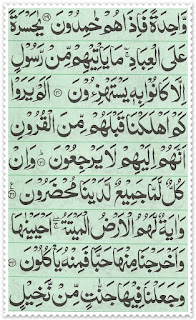 وَاحِدَةً فَاِذَا هُمْ خٰمِدُوْنَ ﴿۲۹﴾ يٰحَسْرَةً
عَلَى الْعِبَادِ ۚ مَا يَاْتِيْهِمْ مِّنْ رَّسُوْلٍ
اِلَّا كَانُوْا بِهٖ يَسْتَهْزِءُوْنَ ﴿۳۰﴾ اَلَمْ يَرَوْا
كَمْ اَهْلَكْنَا قَبْلَهُمْ مِّنَ الْقُرُوْنِ
اَنَّهُمْ اِلَيْهِمْ لَا يَرْجِعُوْنَ ﴿۳۱﴾ وَاِنْ
كُلٌّ لَّمَّا جَمِيْعٌ لَّدَيْنَا مُحْضَرُوْنَ ﴿۳۲﴾ ع
وَاٰيَةٌ لَّهُمُ الْاَرْضُ الْمَيْتَةُ ۚ اَحْيَيْنٰهَا
وَاَخْرَجْنَا مِنْهَا حَبًّا فَمِنْهُ يَاْكُلُوْنَ ﴿۳۳﴾
وَجَعَلْنَا فِيْهَا جَنّٰتٍ مِّنْ نَّخِيْلٍ